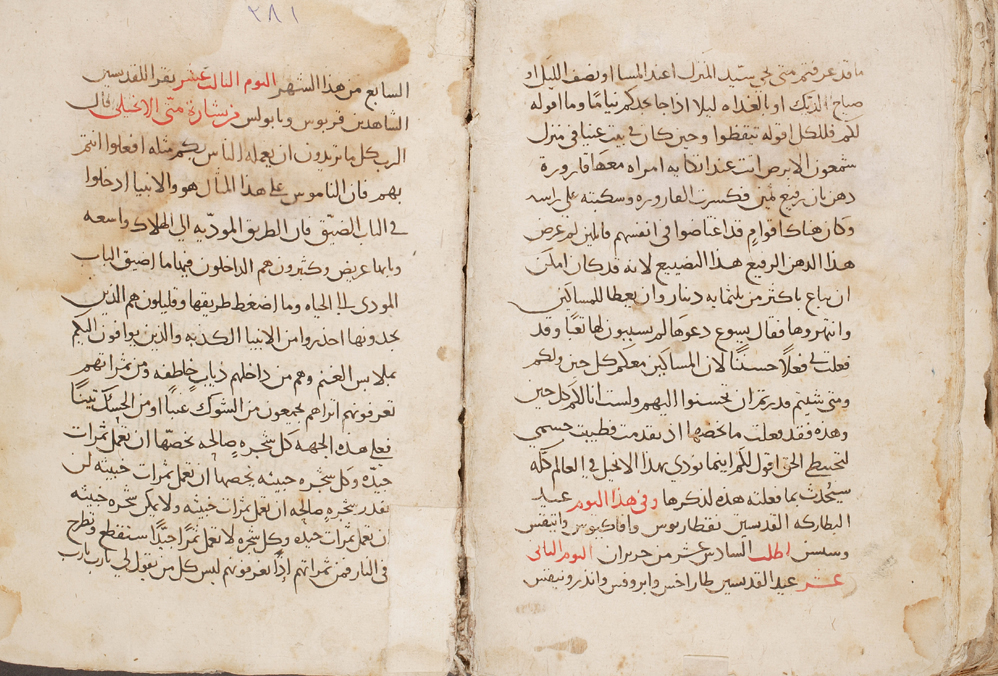 ما قد عرفتم متى يجي سيد المنزل اعند المسا او نصف الليل او
صياح الديك او بالغداه ليلا اذا جا يجدكم نياما وما اقوله
لكم فللكل اقوله تيقظوا وحين كان في بيت عنيا في منزل
سمعون الابرص اتت عند اتكابه امراه معها قارورة
دهن بان رفيع ثمين فكسرت القاروره وسكبته على راسه
وكان هناك اقوام قد اغتاضوا في انفسهم قايلين لم عرض
هذا الدهن الرفيع هذا التضييع لانه قد كان امكن
ان يباع باكثر من ثلثمايه دينار وان يعطا للمساكين
وانتهروها فقال يسوع دعوها لم تسببون لها تعبا وقد
فعلت في فعلا حسنا لان المساكين معكم كل حين ولكم
ومتى شيتم قدرتم ان تحسنوا اليهم ولست انا لكم كل حين
وهذه فقد فعلت ما يخصها اذ تقدمت فطيبت جسمي
لتحنيط الحق اقول لكم اينما نودي بهذا الانجيل في العالم كله
سيحدث بما فعلته هذه لذكرها وفي هذا اليوم عيد
البطاركه القديسين
اطلب السادس عشر من حزيران اليوم الثاني
عشر عيد القديسين طاراخس وابروفس واندرونيقس
٢٨١
السابع من هذا الشهر اليوم الثالث عشر يقرا للقديسين
الشاهدين قربوس وبابولس من بشارة متى الانجيلي قال
الرب كل ما تريدون ان يعمله الناس بكم مثله افعلوا انتم
بهم فان الناموس على هذا المثال هو والانبيا ادخلوا
في الباب الضيق فان الطريق الموديه الى الهلاك واسعه
وبابها عريض وكثيرون هم الداخلون فيها ما اضيق الباب
المودي الى الحياه وما اضغط طريقها وقليلون هم الذين
يجدونها احذروا من الانبيا الكذبه والذين يوافون اليكم
بملابس الغنم وهم من داخلهم ذياب خاطفه ومن ثمراتهم
تعرفونهم اتراهم يجمعون من الشوك عنبا او من الحسك تينا
فعلى هذه الجهه كل شجره صالحه يخصها ان تعمل ثمرات
جيده وكل شجره خبيثه يخصها ان تعمل ثمرات خبيثه لن
تقدر شجره صالحه ان تعمل ثمرات خبيثه ولا يمكن شجره خبيثه
ان تعمل ثمرات جيده وكل شجره لا تعمل ثمرا جيدا ستقطع وتطرح
في النار فمن ثمراتهم اذا تعرفونهم ليس كل من يقول لي يا رب يا رب